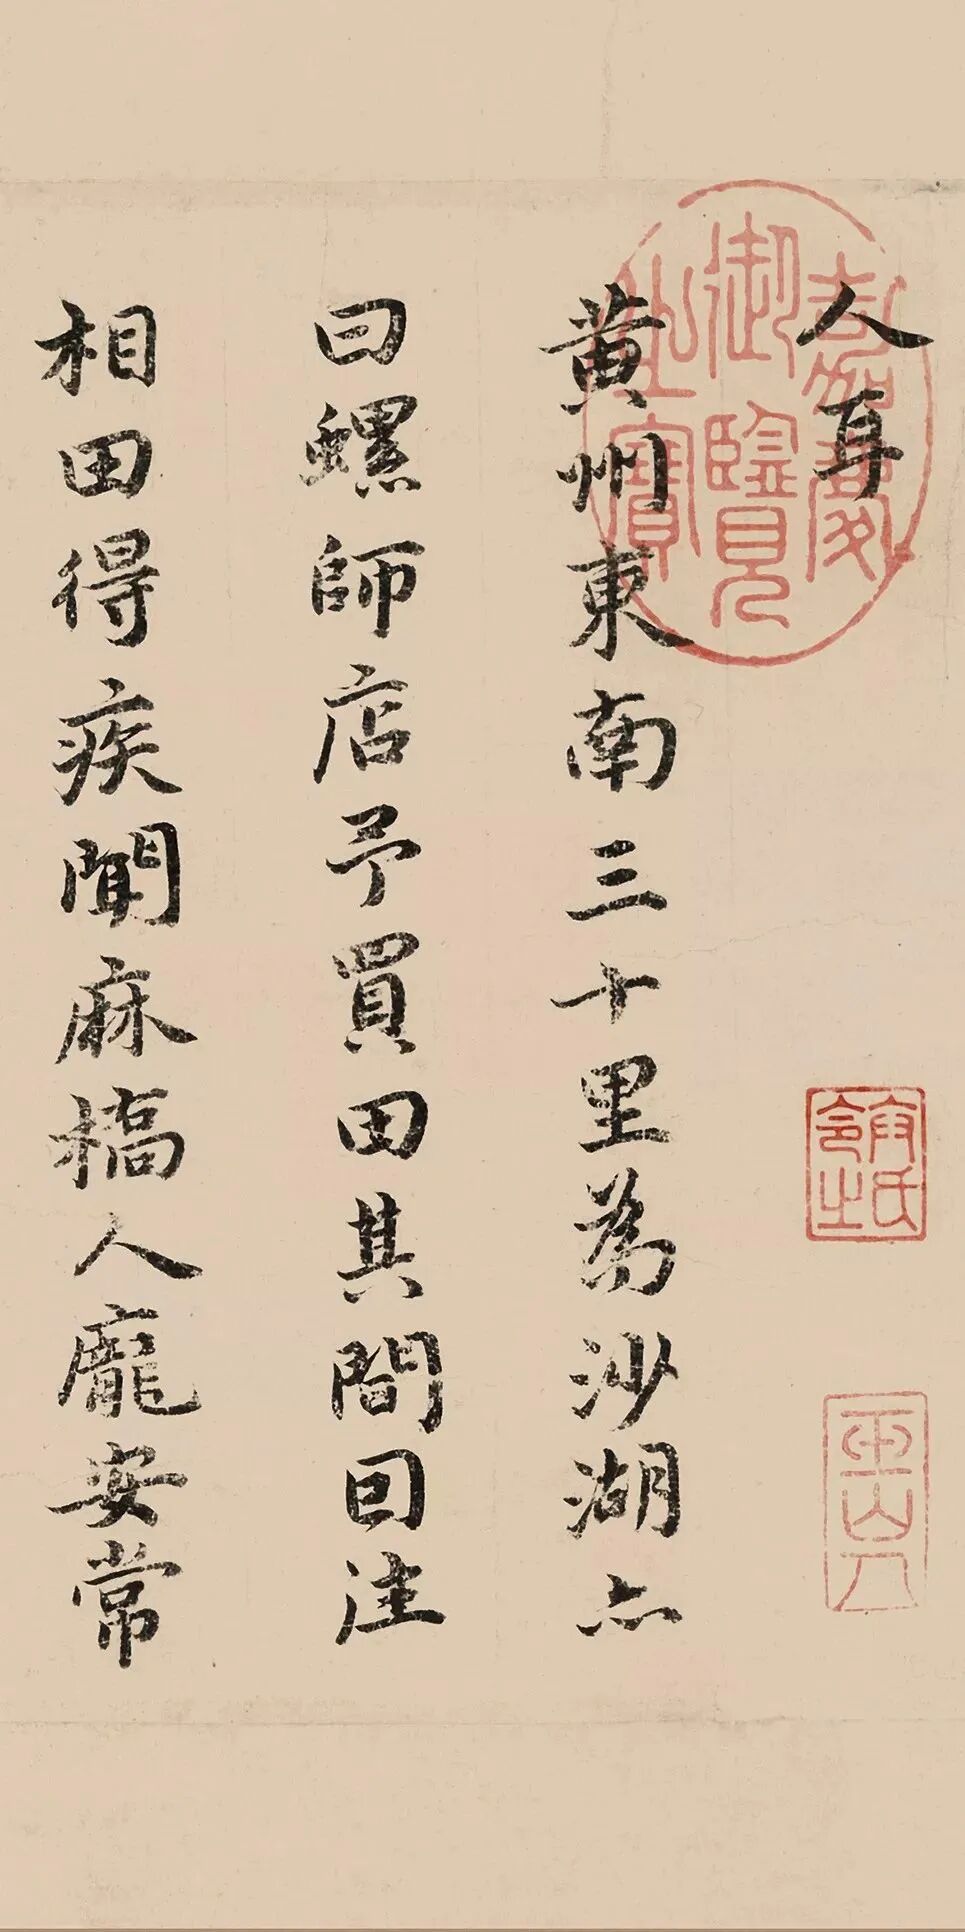 人耳
黄州東南三十里為沙湖亦
曰螺師店予買田其間回往
相田得疾聞麻橋人龐安常
嘉慶
御覽
之寶